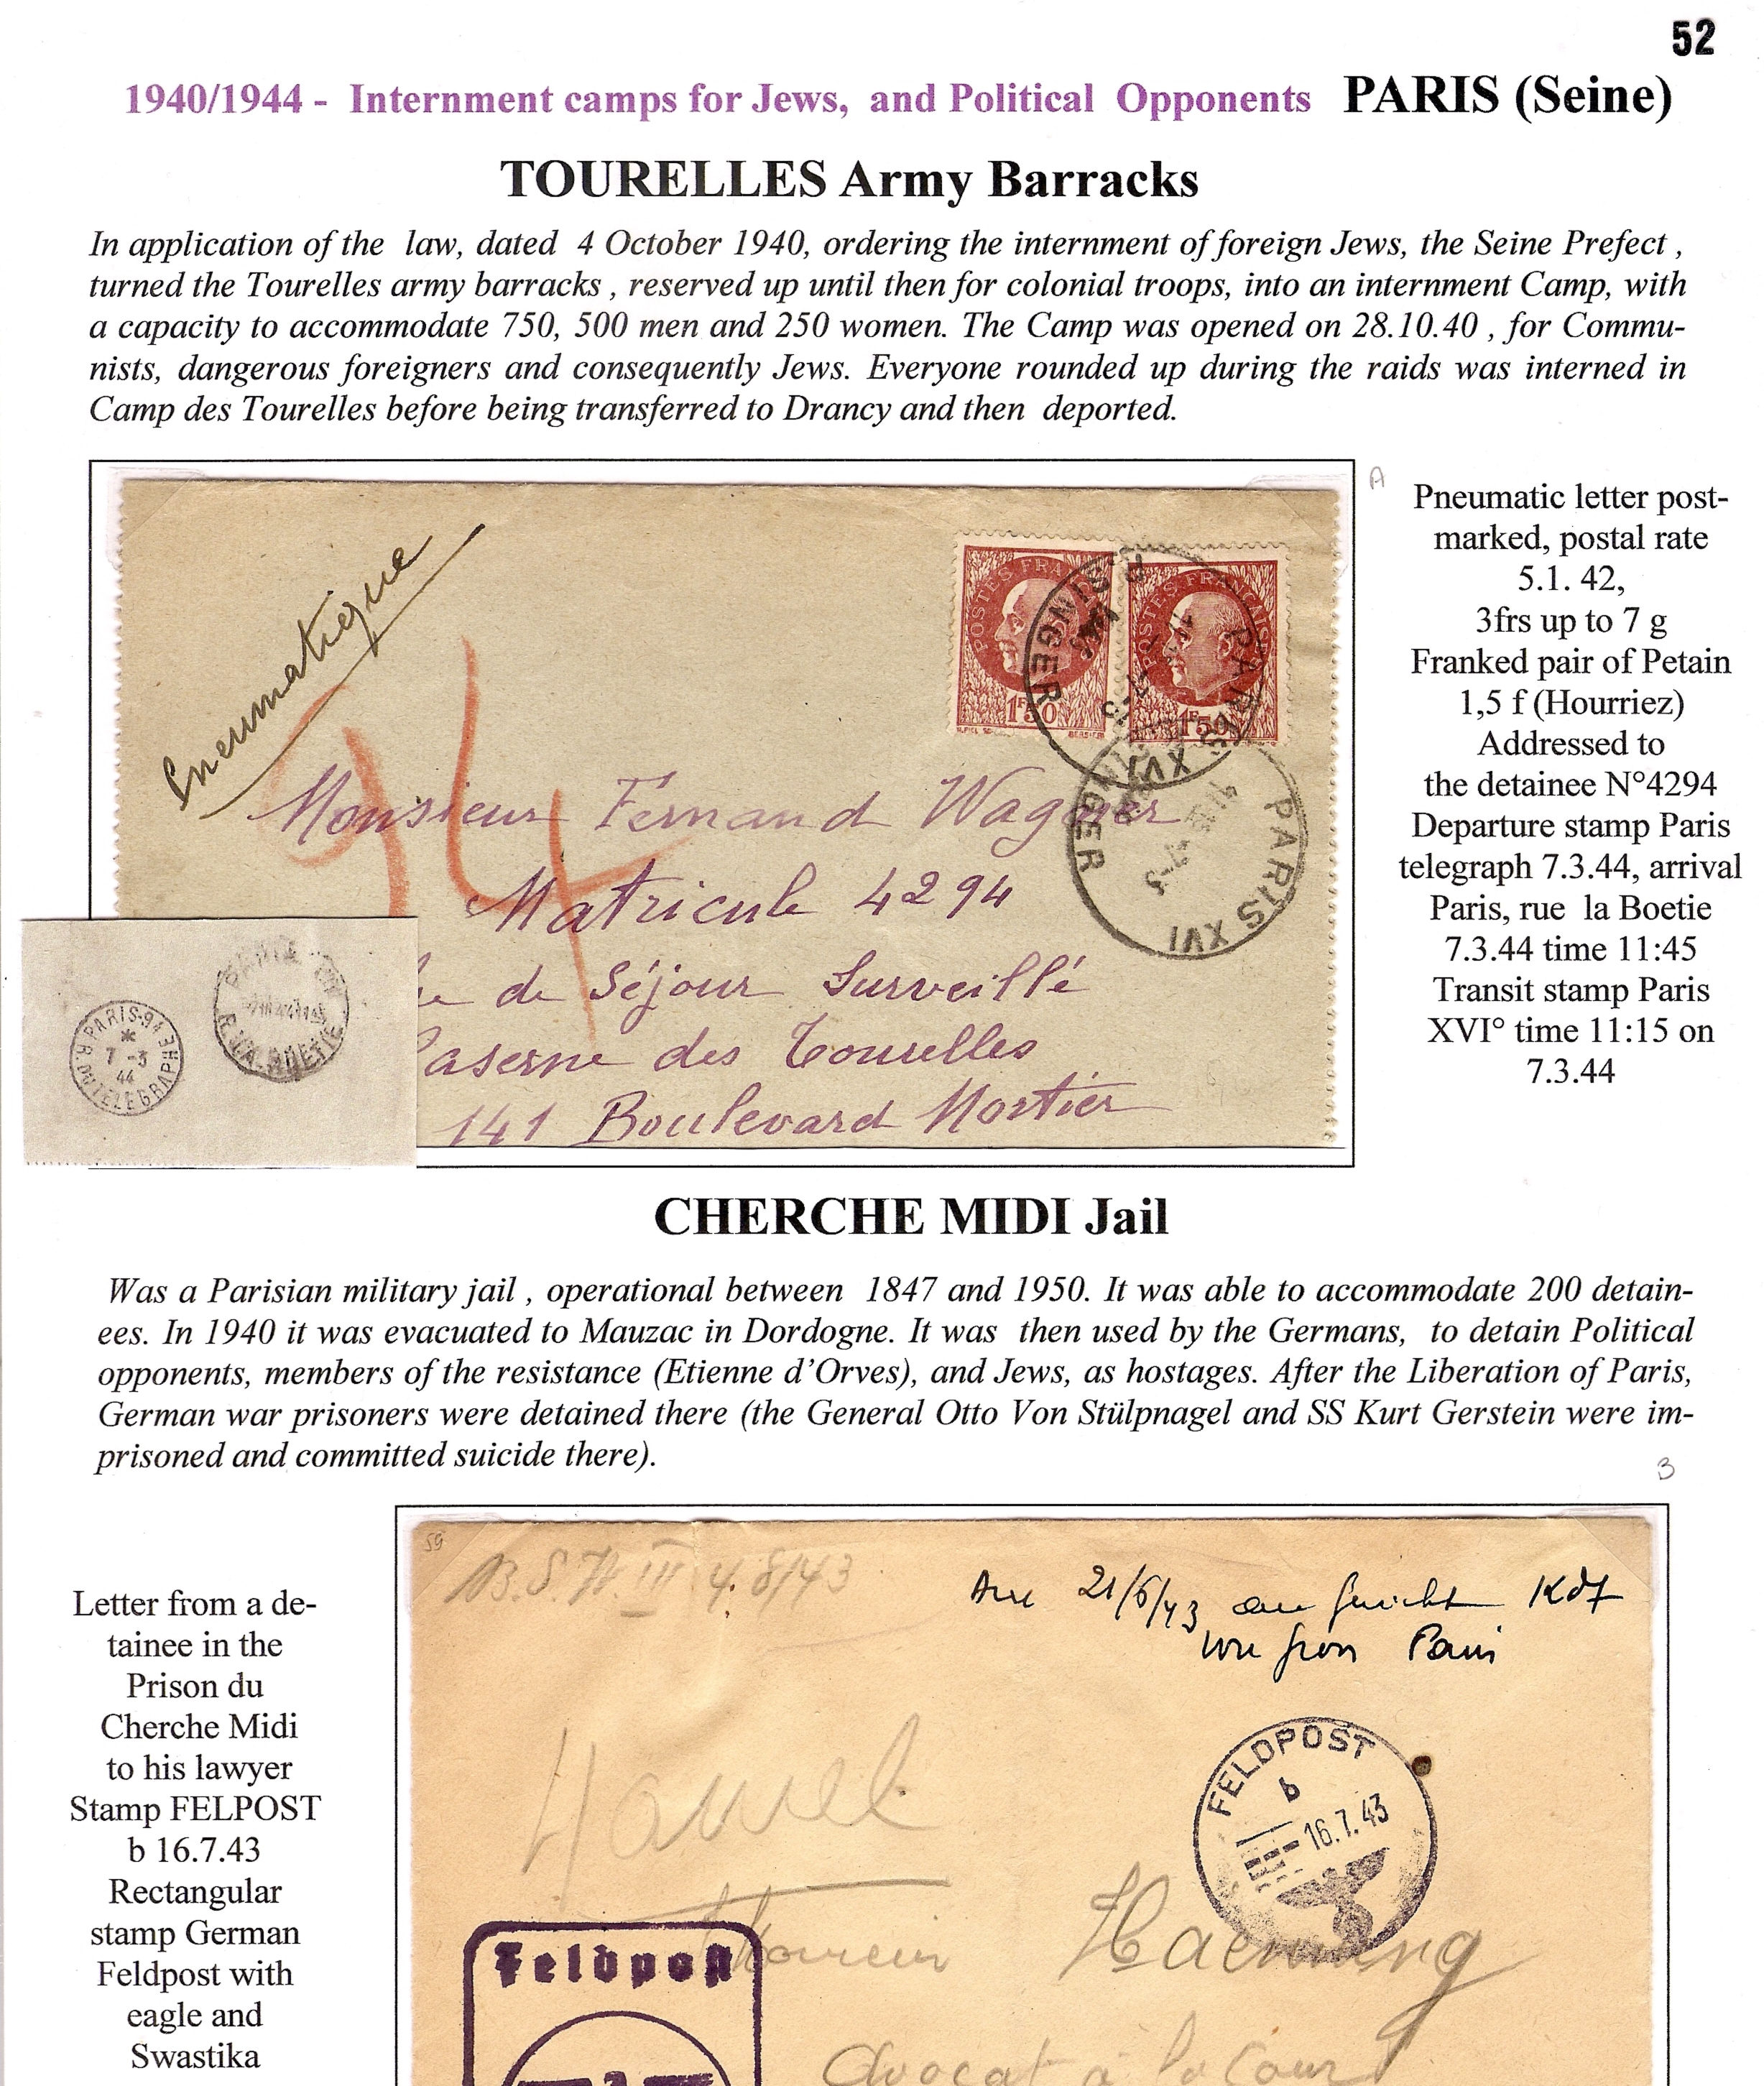 52
1940/1944 - Internment camps for Jews, and Political Opponents PARIS (Seine)
TOURELLES Army Barracks
In application of the law, dated 4 October 1940, ordering the internment of foreign Jews, the Seine Prefect ,
turned the Tourelles army barracks , reserved up until then for colonial troops, into an internment Camp, with
a capacity to accommodate 750, 500 men and 250 women. The Camp was opened on 28.10.40 , for Commu-
nists, dangerous foreigners and consequently Jews. Everyone rounded up during the raids was interned in
Camp des Tourelles before being transferred to Drancy and then deported.
A
Pneumatic letter post-
marked, postal rate
5.1. 42,
3frs up to 7 g
Franked pair of Petain
1,5 f (Hourriez)
Addressed to
the detainee N°4294
Departure stamp Paris
telegraph 7.3.44, arrival
Paris, rue la Boetie
7.3.44 time 11:45
Transit stamp Paris
XVI° time 11:15 on
7.3.44
Pneumatique
94
POSTES FRANÇAISES
1F50
POSTES FRANÇAISES
1F50
PARIS XVI
SINGER
PARIS XVI
Monsieur Fernand Wagner
Matricule 4294
de Séjour Surveillé
Caserne des Tourelles
141 Boulevard Mortier
PARIS-94
R. DU TELEGRAPHE
7 -3
44
CHERCHE MIDI Jail
Was a Parisian military jail , operational between 1847 and 1950. It was able to accommodate 200 detain-
ees. In 1940 it was evacuated to Mauzac in Dordogne. It was then used by the Germans, to detain Political
opponents, members of the resistance (Etienne d'Orves), and Jews, as hostages. After the Liberation of Paris,
German war prisoners were detained there (the General Otto Von Stülpnagel and SS Kurt Gerstein were im-
prisoned and committed suicide there).
B
Letter from a de-
tainee in the
Prison du
Cherche Midi
to his lawyer
Stamp FELPOST
b 16.7.43
Rectangular
stamp German
Feldpost with
eagle and
Swastika
59
III 4.8/43
21/6/43
Paris
FELDPOST
b
16.7.43
Feldpost
Haenning
Avocat à la Cour